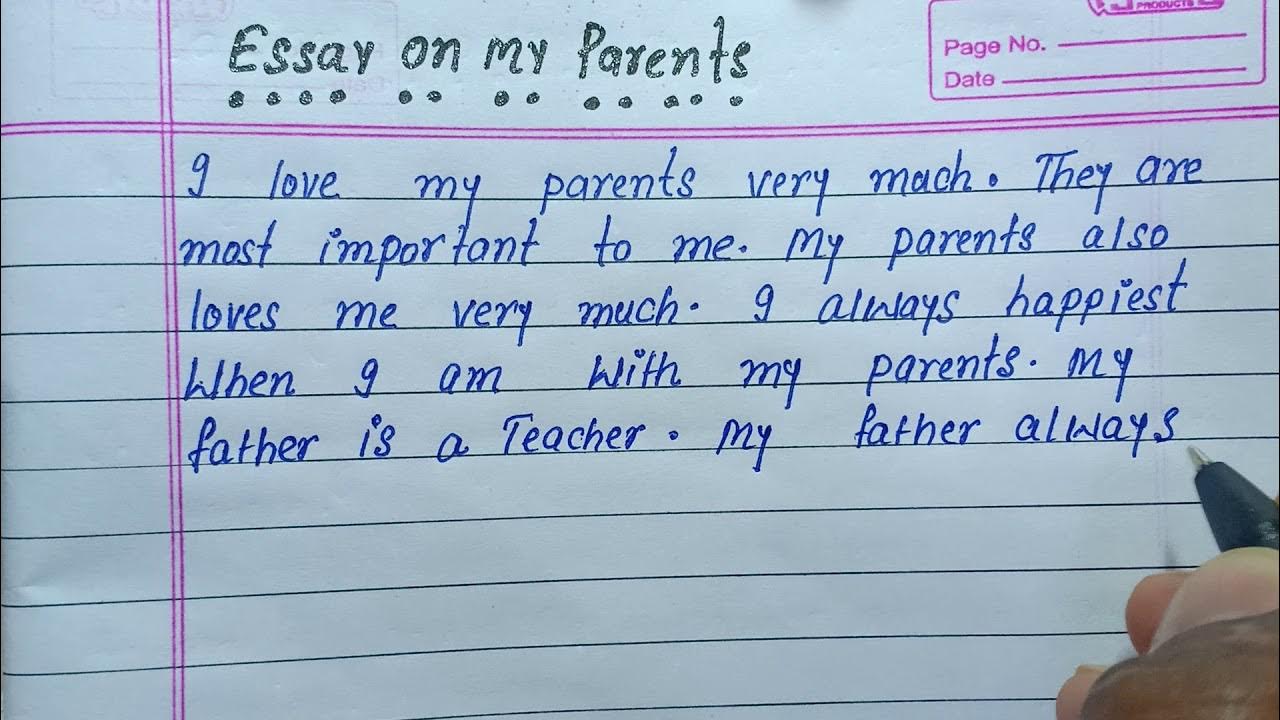 Essay on my Parents
PRODUCTS
Page No.
Date
I love my parents very mach. They are
most important to me. My parents also
loves me very much. I always happiest
When I am With my parents. My
father is a Teacher. My father always